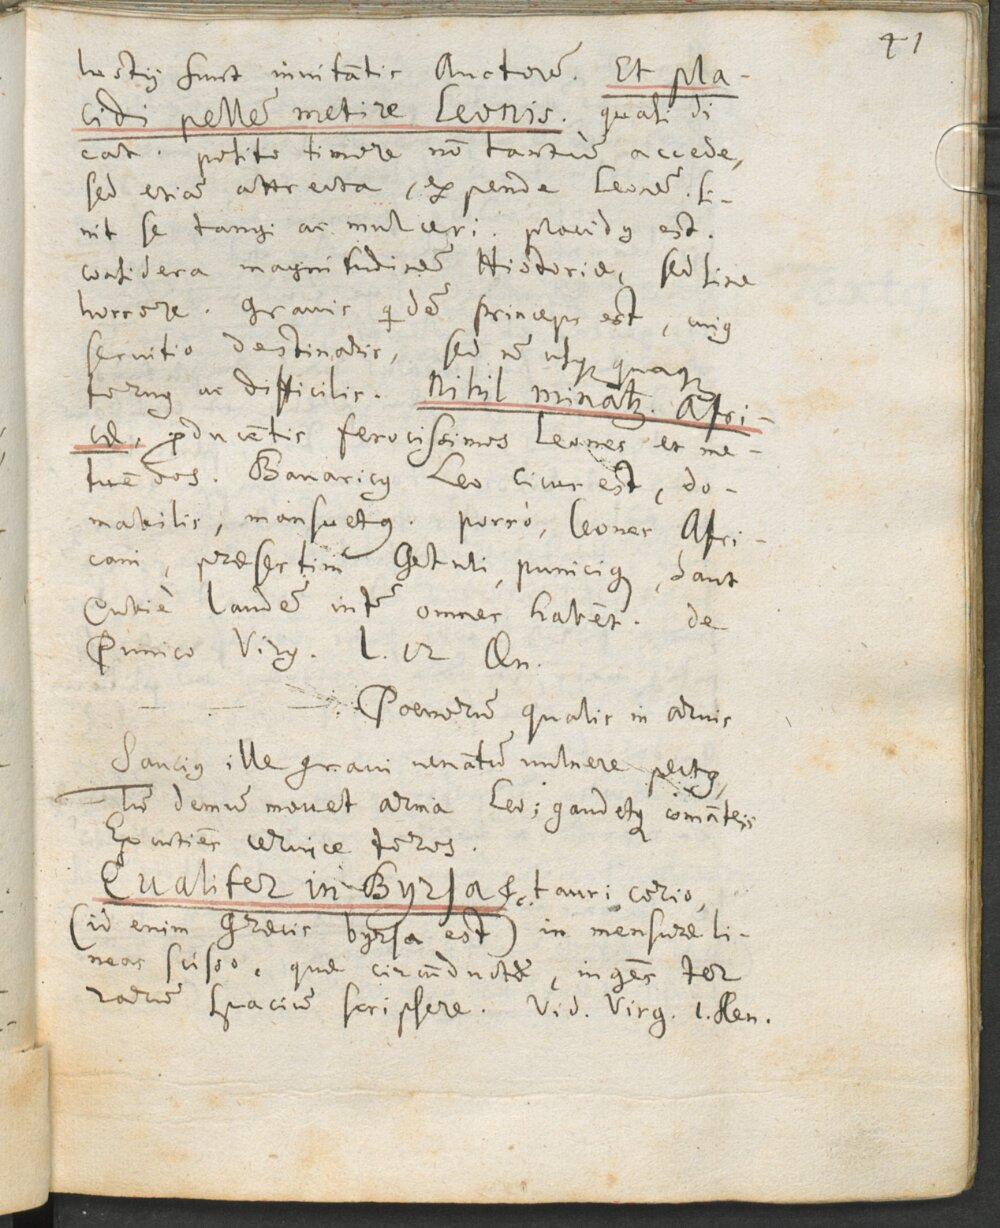 41
hostij sunt inuitātis Auctorē. Et pla-
cidi pellē metire Leonis. quasi di
cat. posito timore nō tantū accede,
sed etiā attrecta, expende Leonē. Si-
nit se tangi ac mulceri. placidꝰ est.
considera magnitudinē Historiæ, sed sine
horrore. Grauis qdē princeps est, cuiꝰ
seruitio destinaris, sed nō usq quaq
toruꝰ ac difficilis. Nihil minatꝶ. Afri-
cæ, pducētis ferocissimos Leones et me-
tuēdos. Bauaricꝰ Leo cicur est, do-
mabilis, mansuetꝰ. porrò, leones Afri-
cani, præsertim Getuli, puniciq, haut
laudē intē omnes habēt. de
Punico Virg. l. 12 Æn.
Poenorū qualis in aruis
Sauciꝰ ille graui uenātū uulnere pectꝰ,
Tū demū mouet arma Leo; gaudetq comātes
Excutiēs ceruice toros.
Qualiter in Byrsa &c. tauri corio,
(id enim Græcis byrsa est) in mensuræ li-
neas scisso, quæ circūductæ, ingēs ter
rarū spaciū scripsere. Vid. Virg. 1. Aen.